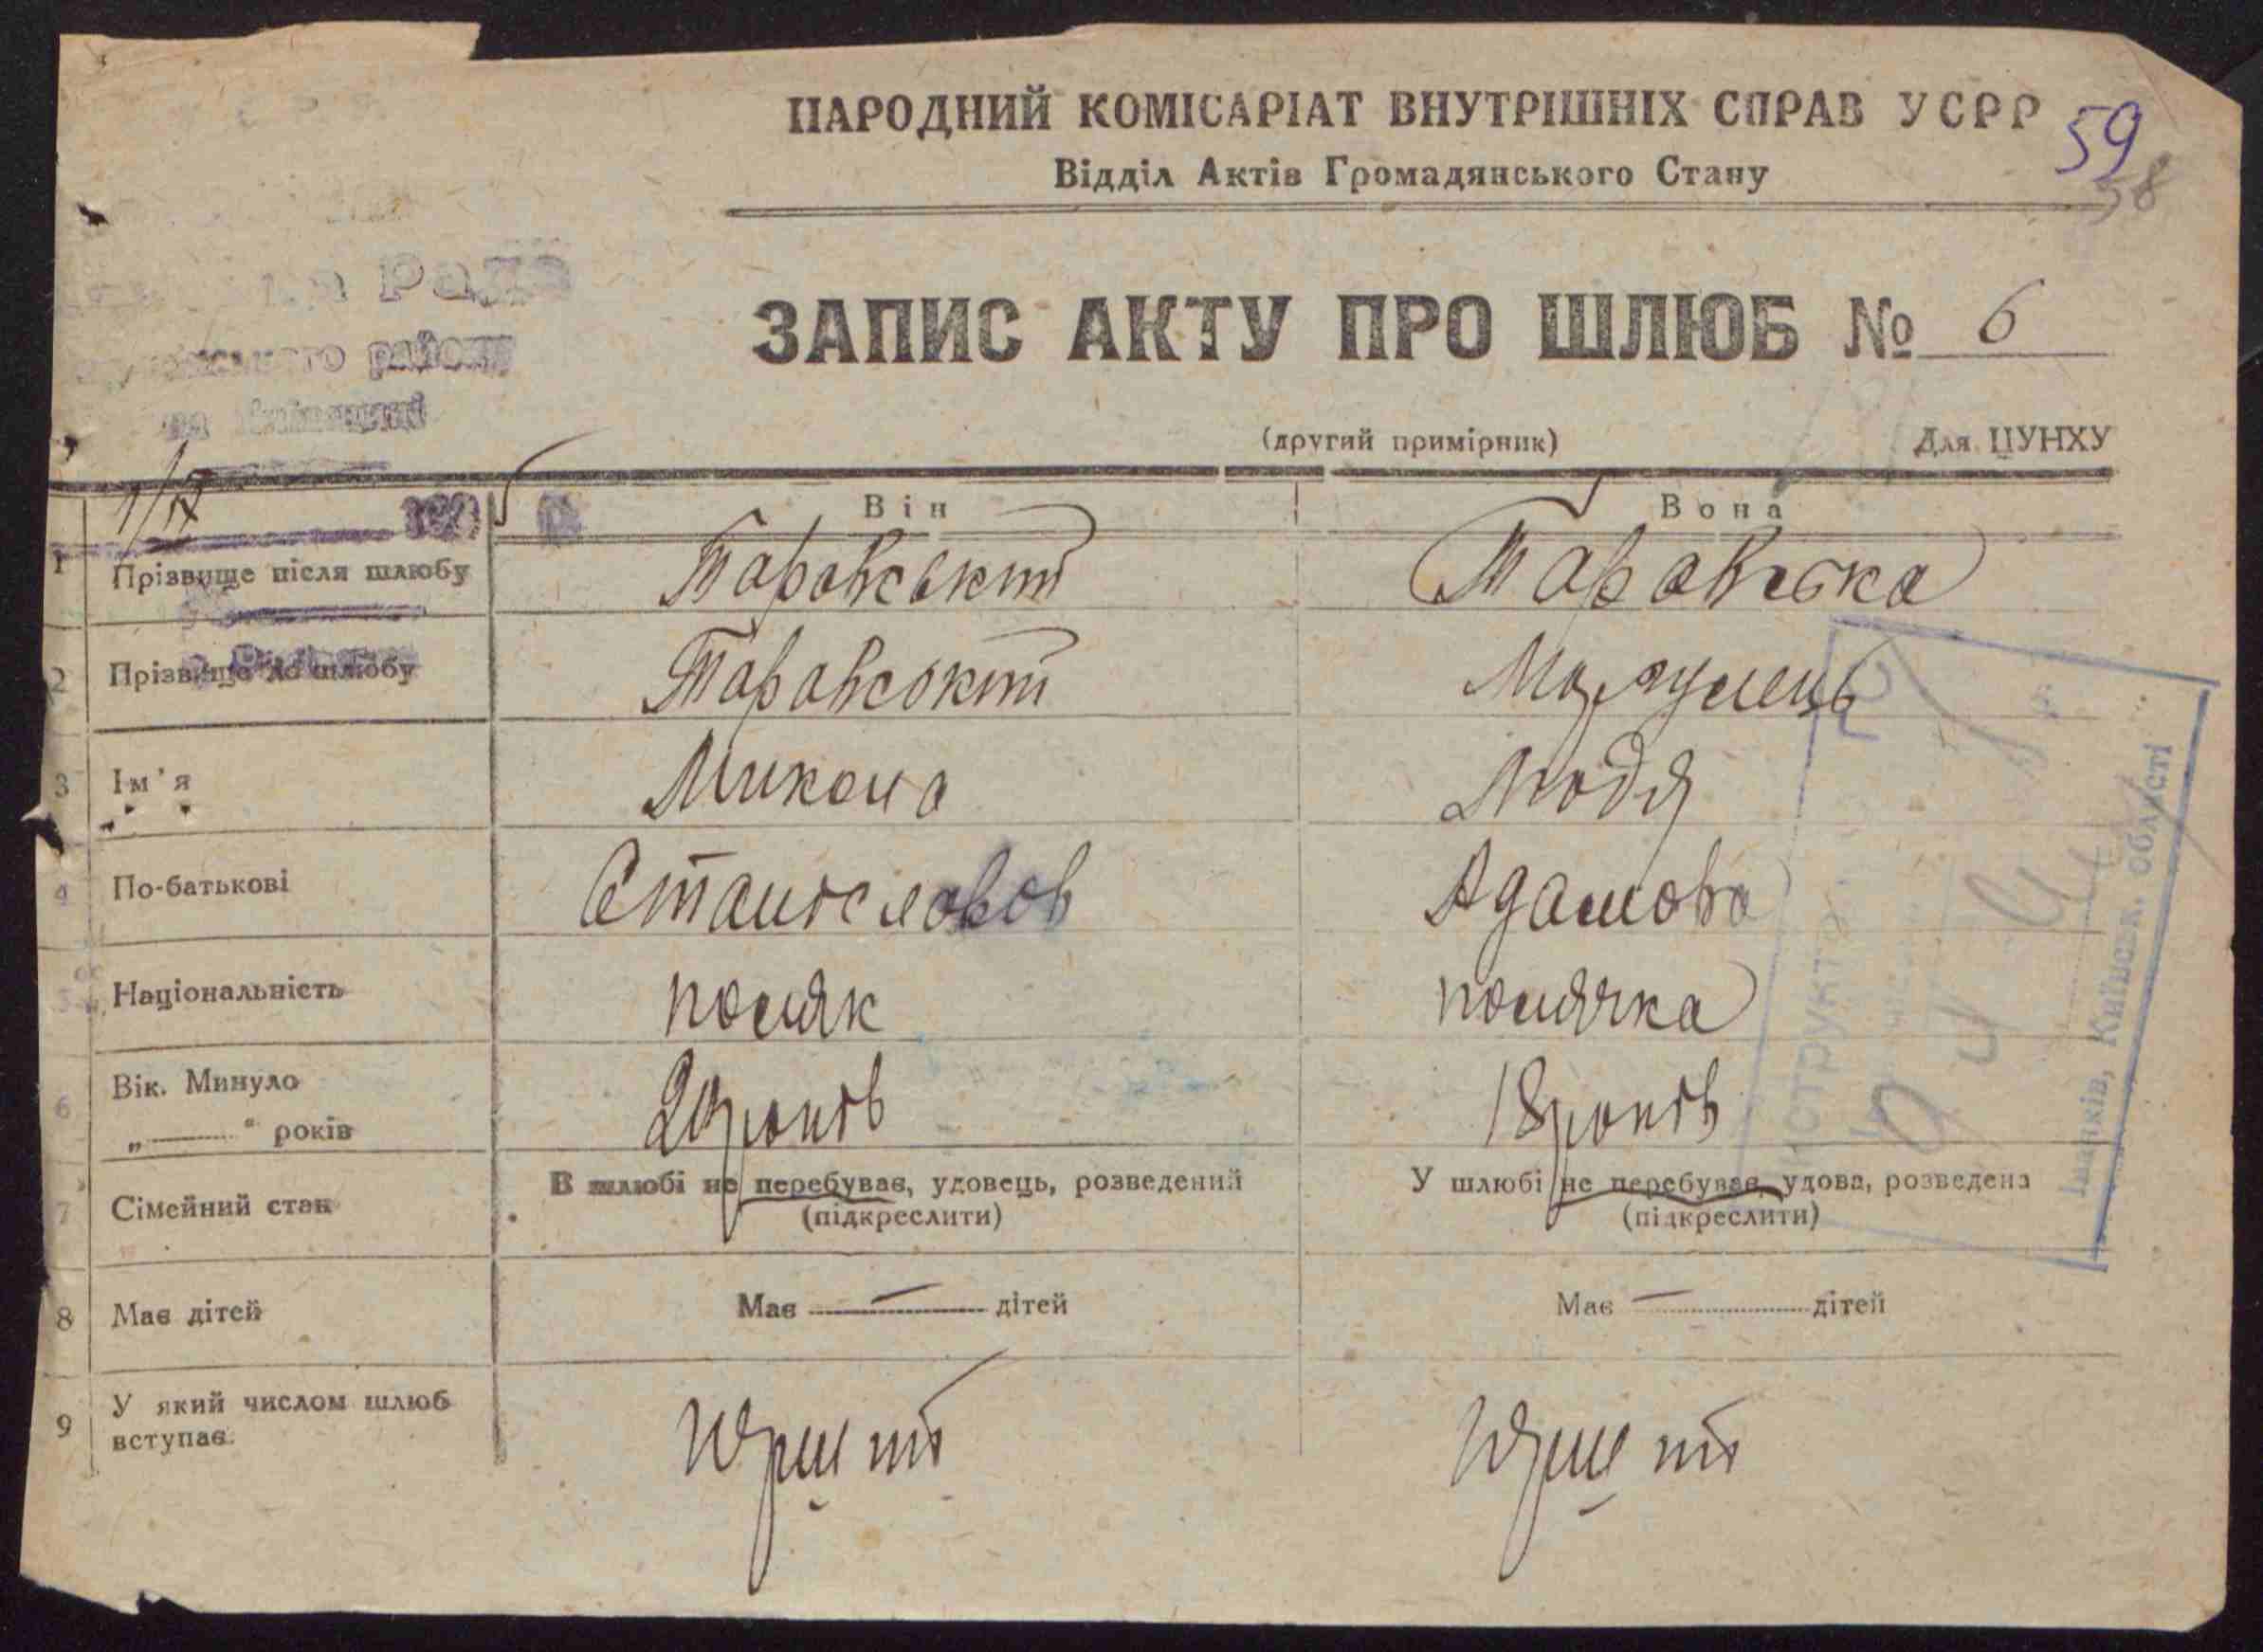 НАРОДНИЙ КОМІСАРІАТ ВНУТРІШНІХ СПРАВ УСРР
59
58
Відділ Актів Громадянського Стану
Рада
району
ЗАПИС АКТУ ПРО ШЛЮБ № 6
(другий примірник) Для ЦУНХУ
Він Вона
1 Прізвище після шлюбу Таравський Таравська
2 Прізвище до шлюбу Таравський
3 Ім'я Микола Людя
4 По-батькові Станіславов Адамова
Національність поляк полячка
6 Вік. Минуло
„ “ років років 18 років
7 Сімейний стан В шлюбі не перебував, удовець, розведений У шлюбі не перебував, удова, розведена
(підкреслити) (підкреслити)
8 Має дітей Має — дітей Має — дітей
9 У який числом шлюб
вступає.
Київськ. області